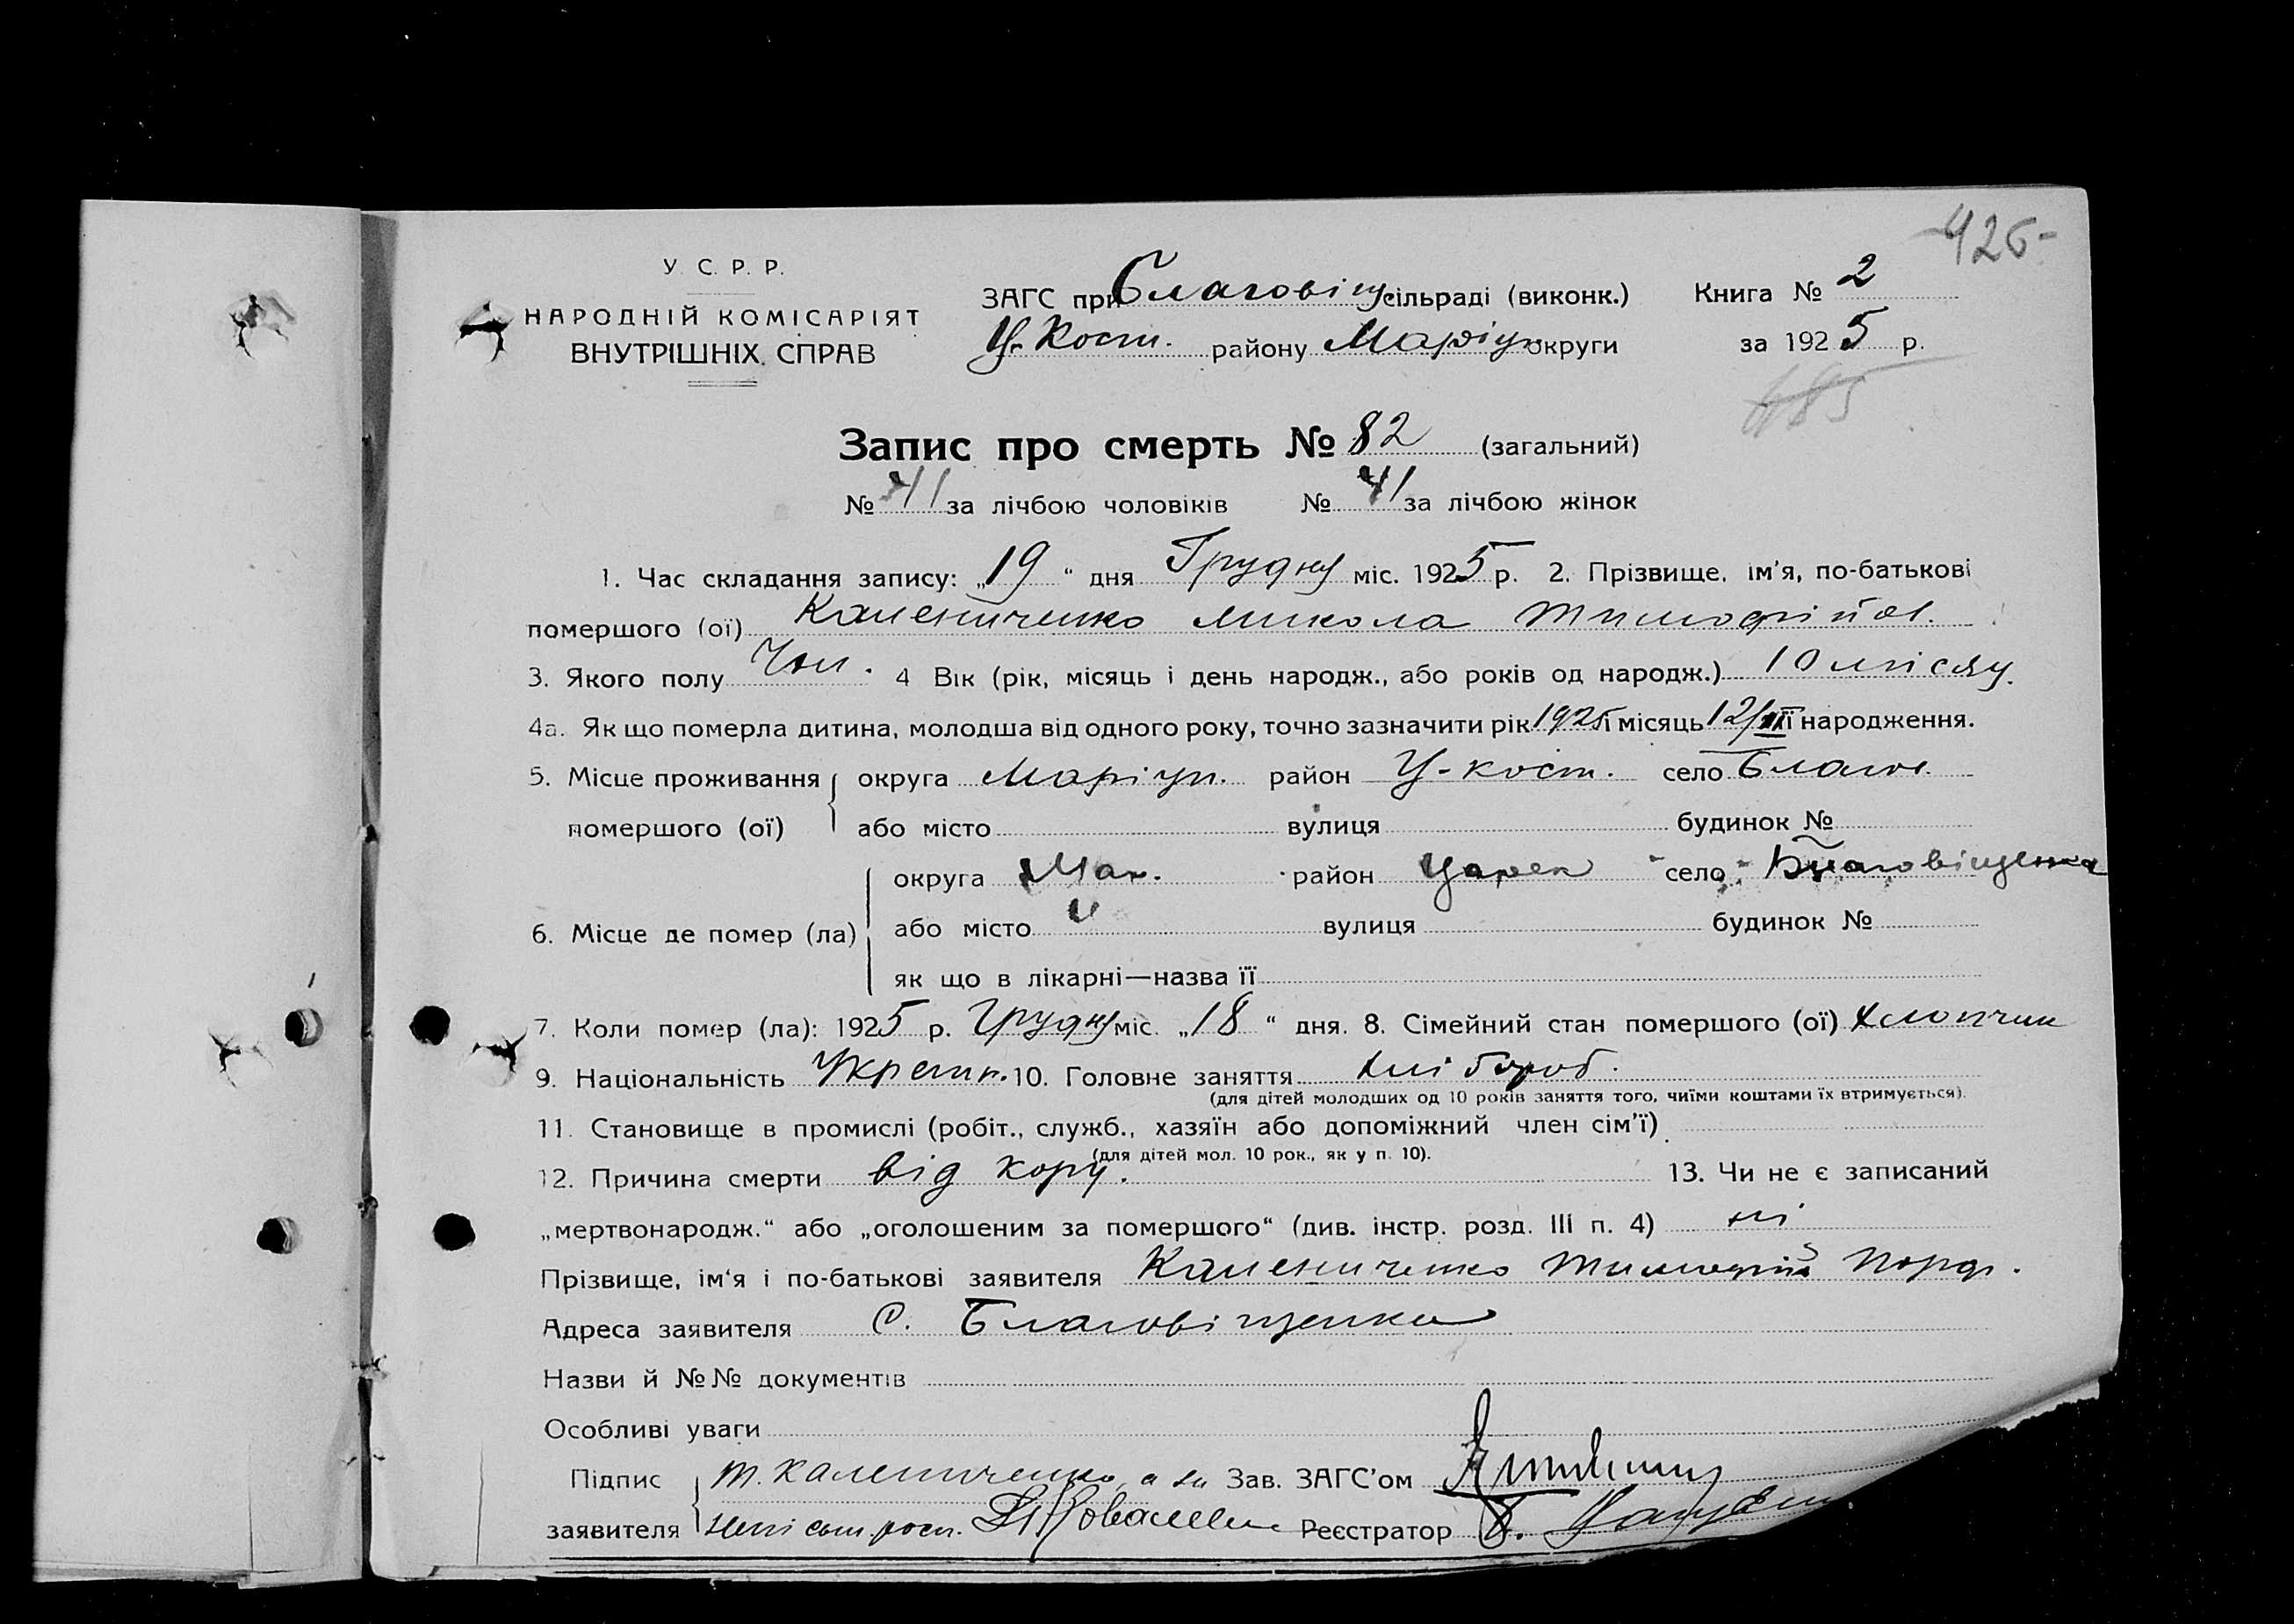 -426-
У. С. Р. Р.
НАРОДНІЙ КОМІСАРІЯТ
ВНУТРІШНІХ СПРАВ
ЗАГС при Благовіщ сільраді (виконк.) Книга № 2
Ц-Кост. району Маріуп округи за 1925 р.
485
Запис про смерть № 82 (загальний)
№ 41 за лічбою чоловіків № 41 за лічбою жінок
1. Час складання запису: „19“ дня Грудня міс. 1925 р. 2. Прізвище, ім'я, по-батькові
помершого (ої) Калениченко Микола Тимофійов.
3. Якого полу Чол. 4 Вік (рік, місяць і день народж., або років од народж.) 10 місяц.
4а. Як що померла дитина, молодша від одного року, точно зазначити рік 1925 і місяць 12/ її народження.
5. Місце проживання округа Маріуп. район Ц-кост. село Благов.
помершого (ої) або місто вулиця будинок №
округа Мар. район Царек село Благовіщенка
6. Місце де помер (ла) або місто вулиця будинок №
як що в лікарні—назва її
7. Коли помер (ла): 1925 р. Грудня міс. „18“ дня. 8. Сімейний стан помершого (ої) хлопчик
9. Національність Украин. 10. Головне заняття хлібороб.
(для дітей молодших од 10 років заняття того, чиїми коштами їх втримується).
11. Становище в промислі (робіт., служб., хазяїн або допоміжний член сім'ї)
(для дітей мол. 10 рок., як у п. 10).
12. Причина смерти від кору. 13. Чи не є записаний
„мертвонародж.“ або „оголошеним за помершого“ (див. інстр. розд. III п. 4) ні
Прізвище, ім'я і по-батькові заявителя Калениченко Тимофій Порф.
Адреса заявителя с. Благовіщенка
Назви й №№ документів
Особливі уваги
Підпис Т. Калениченко, а за Зав. ЗАГС'ом
заявителя росп. Реєстратор